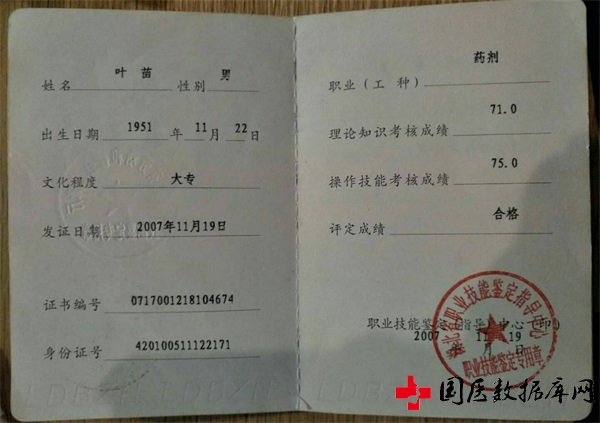 姓名 叶苗 性别 男
出生日期 1951 年 11 月 22 日
文化程度 大专
发证日期 2007年11月19日
证书编号 0717001218104674
身份证号 420100511122171
药剂
职业（工 种）
71.0
理论知识考核成绩
75.0
操作技能考核成绩
合格
评定成绩
职业技能鉴定（指导）中心（印）
2007 11 19
年 月 日
北 职业技能鉴定指导中心
职业技能鉴定专用章
国医数据库网